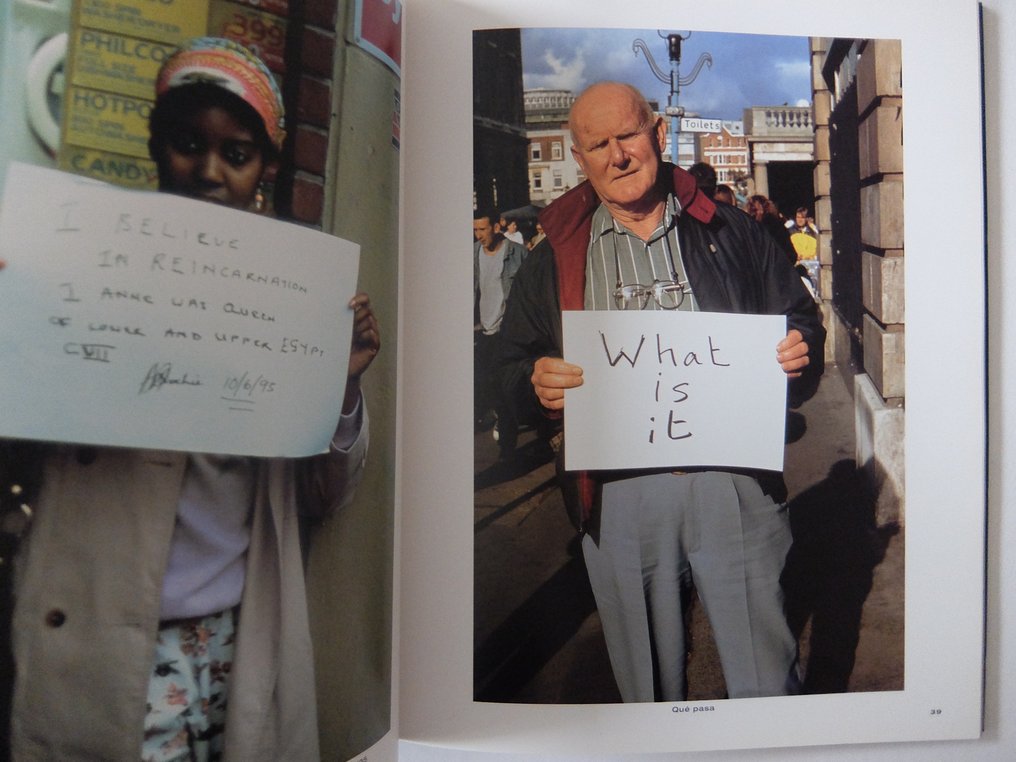 399
PHILCO
HOTPO
CANDY
I BELIEVE
IN REINCARNATION
I ANNE WAS QUEEN
OF LOWER AND UPPER EGYPT
C VIII
10/6/93
Toilets
What
is
it
Qué pasa
39